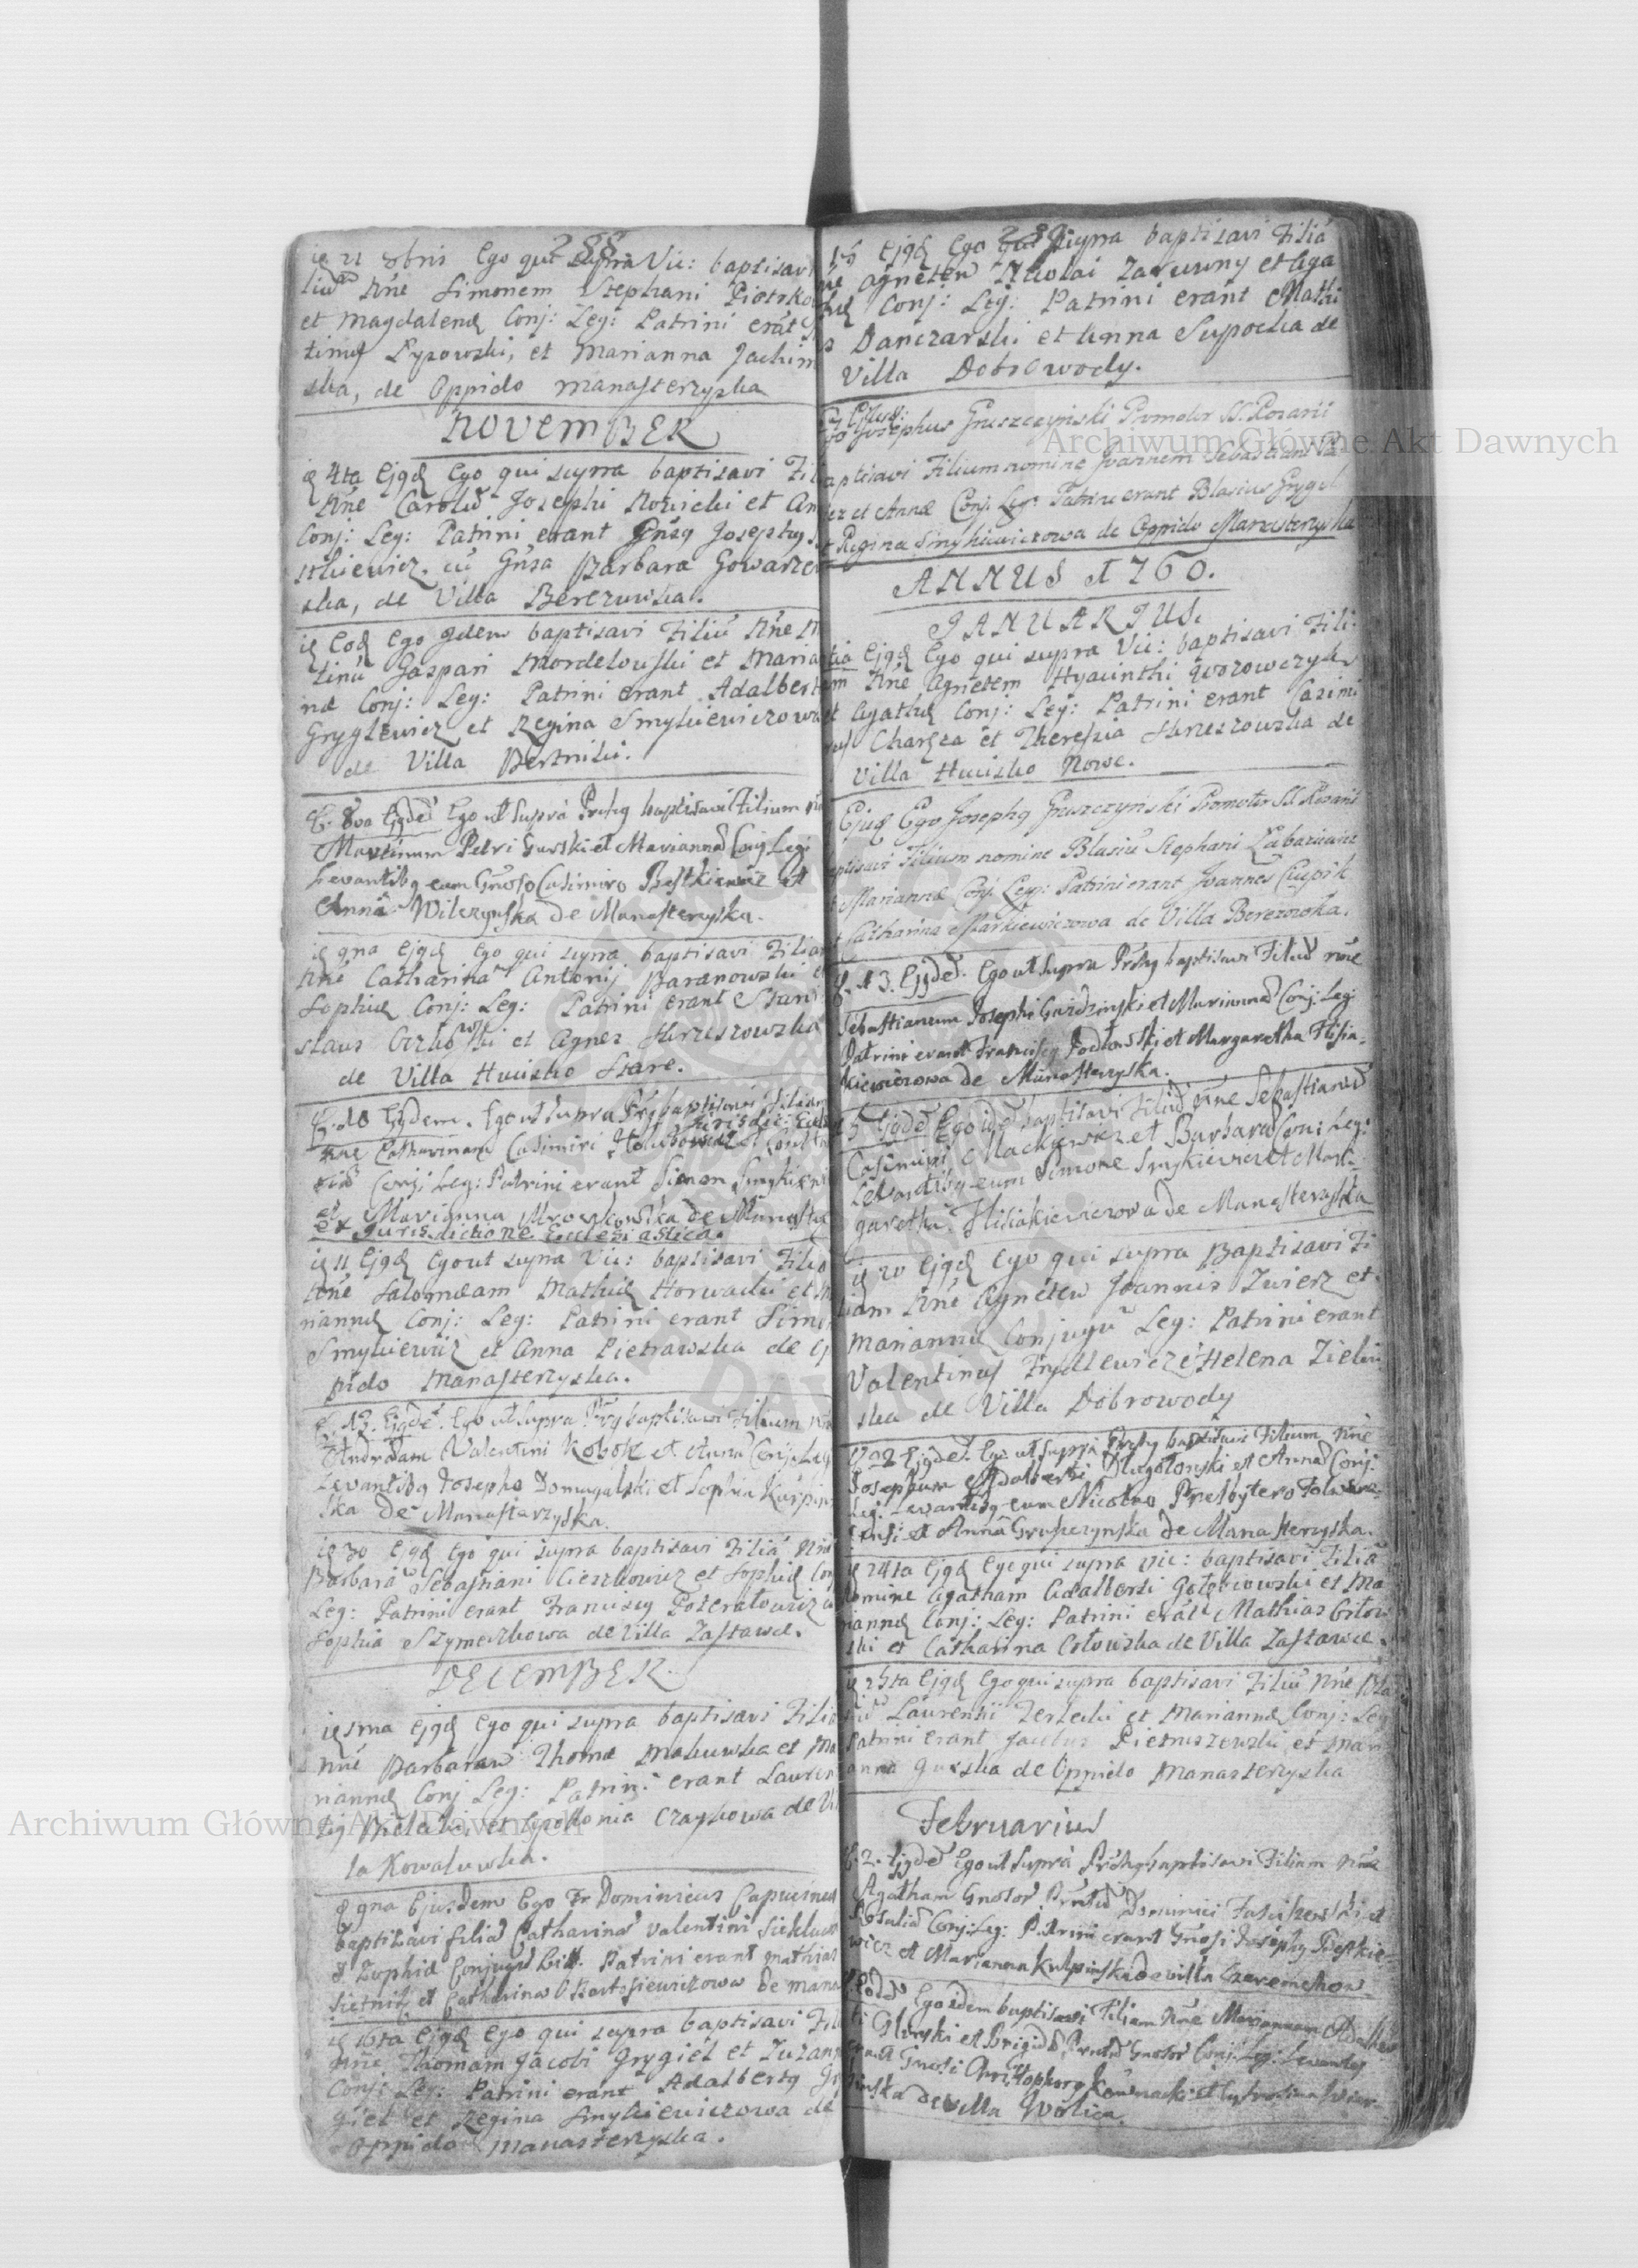 288
21 8bris Ego qui supra Vic: baptisavi
Nne Simonem Stephani
et Magdalenæ Conj: Leg: Patrini erāt
Pyzowski, et Marianna Jachim
ska, de Oppido Manasterzyska
NOVEMBER
4ta Ejqd Ego qui supra baptisavi Fil
Nne Carolū Josephi Nowicki et An
Conj: Leg: Patrini erant Gnsq Josephq
cū Gnsa Barbara Gowarze
ska, de Villa Berezowska.
Eod Ego Idem baptisavi Filiū Nne M
tinū Gaspari Mordelowski et Maria
næ Conj: Leg: Patrini erant Adalbert
Gryglewicz et Regina Smykiewiczowa
de Villa Bertniki.
8va Ejqde Ego ut Supra Prhq baptisavi Filium
Martinum Petri Gurski et Mariannæ Conj Leg:
Levantibq eum Gnoso Casimiro et
Anna Wilczynska de Manasterzyska.
9na Ejqd Ego qui supra baptisavi Filiam
Nne Catharinam Antonij Baranowski e
Sophiæ Conj: Leg: Patrini erant Stani
slaus et Agnes Hrzeszowska
de Villa Huisko Stare.
10 Ejqdem. Ego ut Supra Prhq baptisavi Filiam
Catharinam Casimiri
Conj: Leg: Patrini erant Simon Smykiewi
et Marianna Mrozkowska de Manaste
ex Jurisdictione Ecclesiastica.
11 Ejqd Ego ut supra Vic: baptisavi Filiā
Nne Salomeam Mathiæ Horwacki et M
riannæ Conj: Leg: Patrini erant Simo
Smykiewicz et Anna Pietrawska de O
pido Manasterzyska.
13. Ejqde. Ego ut Supra Prhq baptisavi Filium
Andream Valentini Kobok et Annæ Conj: Leg
Levantibq Josepho Domagalski et Sophia
ska de Manasterzyska.
30 Ejqd Ego qui supra baptisavi Filiā
Barbarā Sebastiani Cieszkowicz et Sophiæ Con
Leg: Patrini erant Franciscq
Sophia Szymeczkowa de Villa Zastawce.
DECEMBER.
Ejqd Ego qui supra baptisavi Filia
Nne Barbaram Thomæ Makuwka et Ma
riannæ Conj Leg: Patrini erant Lauren
tiq Bielecki, et Apollonia Czaykowa de Vi
la Kowaluwka.
9na Ejusdem Ego Fr Dominicus Capucinus
baptizavi filiā Catharinā Valentini
& Zophiæ Conjugū Patrini erant Mathias
et Catharina de Mana
16ta Ejqd Ego qui supra baptisavi Fil
Nne Thomam Jacobi Grygiel et Zuzann
Conj: Leg: Patrini erant Adalbertq Gr
giel et Regina Smykiewiczowa de
Oppido Manasterzyska.
Ejqd Ego qui supra baptisavi Filiā
Agnetem Nicolai et Aga
Conj: Leg: Patrini erant Mathi
Danczarski et Anna Supocka de
Villa Dobrowody.
Ejusd:
Josephus Gruszczynski Promotor SS. Rosarii
aptisavi Filium nomine Joannem Sebastiani
et Annæ Conj. Leg: Patrini erant Blasius Grygel
et Regina Smykiewiczowa de Oppido Manasterzyska
ANNUS 1760.
JANUARIUS.
Ejqd Ego qui supra Vic: baptisavi Fili
am Nne Agnetem Hyacinthi Woyowczyk
et Agathæ Conj: Leg: Patrini erant Casimi
rus Charęza et Theresia Hrzeszowska de
Villa Huisko Nowe.
Ejusd Ego Josephq Gruszczyński Promotor SS. Rosarii
aptisavi Filium nomine Blasiū Stephani
Mariannæ Conj. Leg: Patrini erant Joannes Czupik
et Catharina Markiewiczowa de Villa Berezowka.
13. Ejqde. Ego ut Supra Prhq baptisavi Filiū nne
Sebastianum Josephi Guzdzinski et Mariannæ Conj: Leg:
Patrini erant Franciscq et Margaretha Flisia-
kiewiczowa de Manasterzyska.
Ejqde Ego id baptisavi filiū nne Sebastianū
Casimiri Mackiewicz et Barbaræ Con: Leg:
Levantibq eum Simone Smykiewicz et Mar-
garetha Flisiakiewiczowa de Manasterzyska
20 Ejqd Ego qui supra Baptisavi Fi
liam Nne Agnetem Joannis Zwierz et
Mariannæ Conjugū Leg: Patrini erant
Valentinus Frydlewicz et Helena Zielin
ska de Villa Dobrowody
22 Ejqde. Ego ut Supra Prhq baptisavi Filium Nne
Josephum Adalberti Dlugolonski et Annæ Conj:
Leg: Levantibq eum Nicolao Presbytero
et Anna Gruszczynska de Manasterzyska.
24ta Ejqd Ego qui supra vic: baptisavi Filiā
Nomine Agatham Adalberti Gołębiowski et Ma
riannæ Conj: Leg: Patrini erāt Mathias Orłow
ski et Catharina Orłowska de Villa Zastawce.
25ta Ejqd Ego qui supra baptisavi Filiū Nne Bla
Laurentii Zerlecki et Mariannæ Conj: Leg
Patrini erant Jacobus Pietruszewski et Mari
anna Gurska de Oppido Manasterzyska
Februarius
2. Ejqde Ego ut Supra Prhq baptisavi Filiam Nne
Agatham Gnosor Dominici et
Rosaliæ Conj: Leg: Patrini erant Gnosi Josephq
wicz et Marianna Kulpinska de villa Czeremchow
Eod Ego idem baptisavi Filiam Nne Mariannam Adalber
ti Glinski et Brigidæ Gnosor Conj. Leg: Levantes
erant Gnosi Christophorq et
de Villa Wolica.
Archiwum Główne Akt Dawnych
Archiwum Główne Akt Dawnych